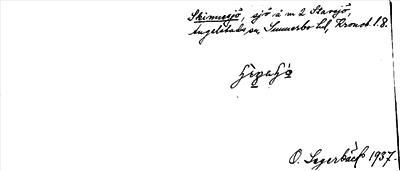 Skinnesjö, sjö å m 2 Starsjö,
Angelstads sn, Sunnerbo hd, Kronob. l. 8.
O. Segerbäck 1937.